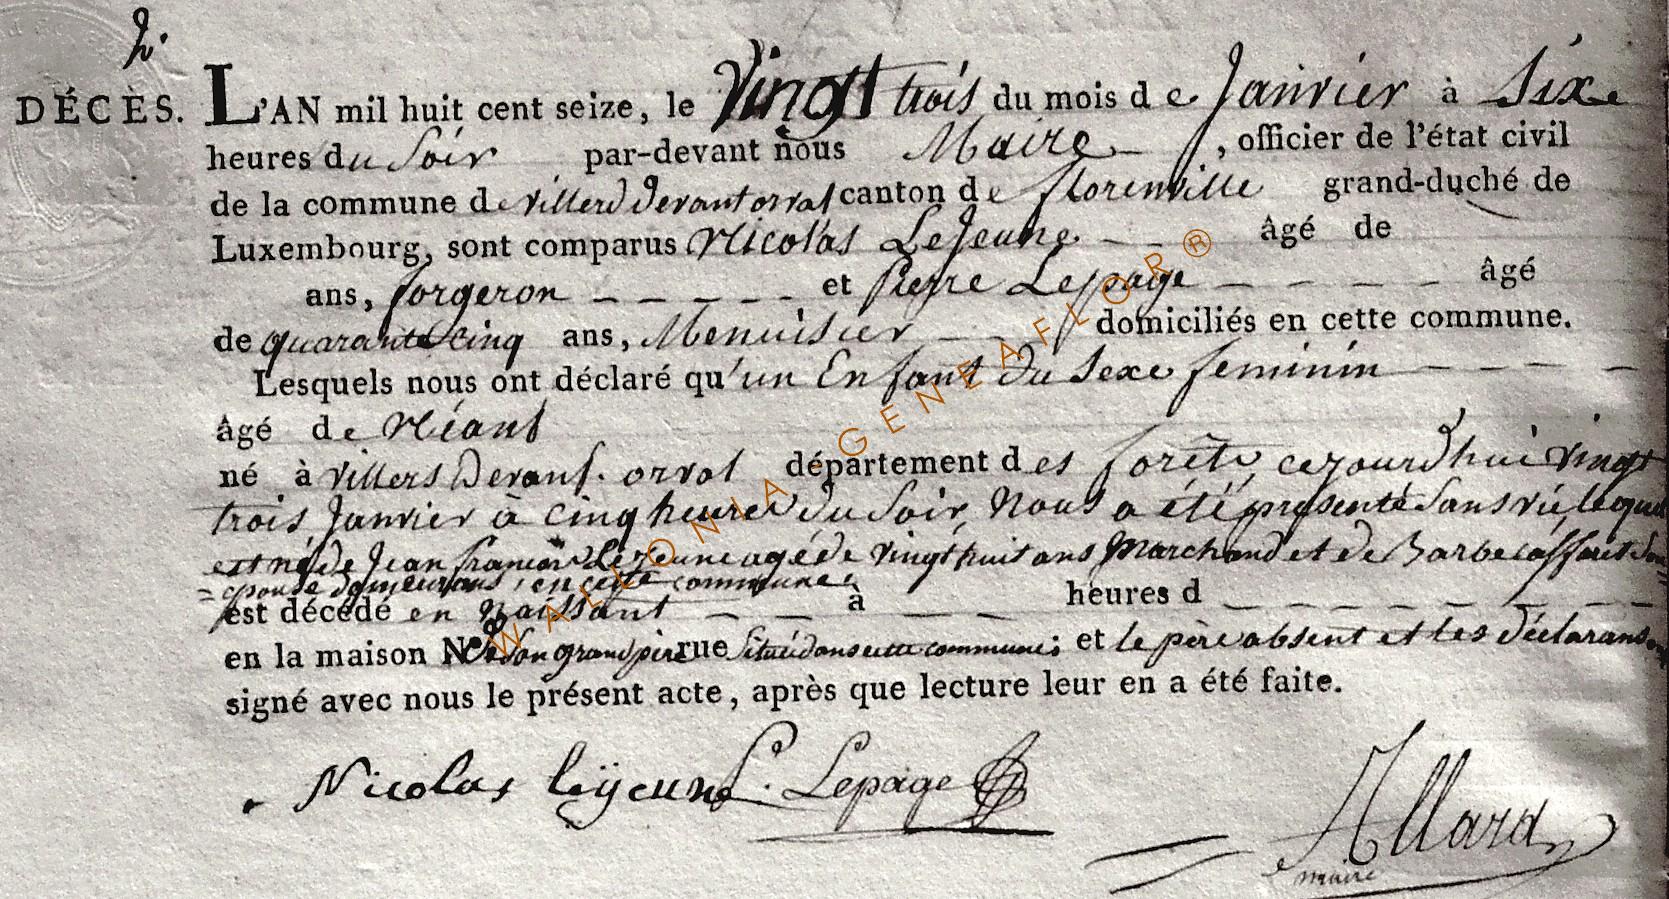 2.
DÉCÈS. L'AN mil huit cent seize, le Vingt trois du mois de Janvier à Six
heures du Soir par-devant nous Maire, officier de l'état civil
de la commune de villers Devant orval canton de florenville grand-duché de
Luxembourg, sont comparus Nicolas LeJeune - - âgé de
ans, forgeron - - - - - - et Pierre Lepage - - - - - âgé
de quarante cinq ans, Menuisier - - domiciliés en cette commune.
Lesquels nous ont déclaré qu'un Enfant du Sexe feminin - - - -
âgé de Néant
né à villers Devant. orval département des forêts cejourdhui vingt
trois Janvier à cinq heures du Soir, Nous a été présenté Sans vie lequel
est né de Jean françois LeJeune agé de vingt huit ans Marchand et de Barbe
épouse demeurans, en cette commune,
est décédé en Naissant - - - à - - - heures d - - - - - - -
en la maison No de Son grand père rue Située dans cette commune; et le père absent et les déclarans
signé avec nous le présent acte, après que lecture leur en a été faite.
Nicolas leÿeune L. Lepage
Allard
maire
WALLONIA GENEAFLOR®